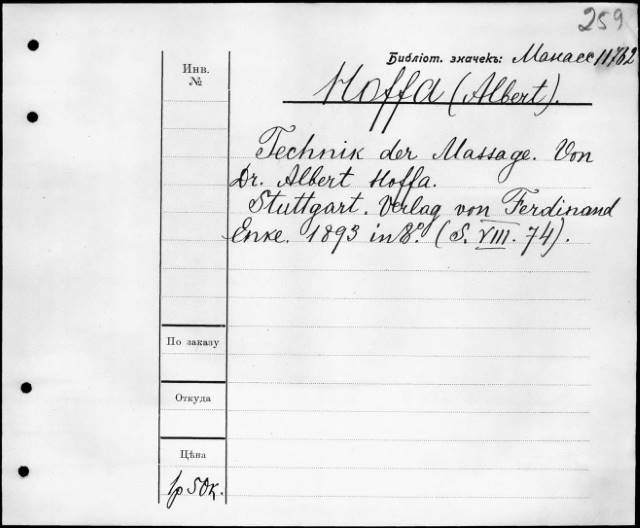 259
Библіот. значекъ: Манасс 11762
Инв.
№
Hoffa (Albert).
Technik der Massage. Von
Dr. Albert Hoffa.
Stuttgart. Verlag von Ferdinand
Enke. 1893 in 8º. (S. VIII. 74).
По заказу
Откуда
Цѣна
1р 50к.